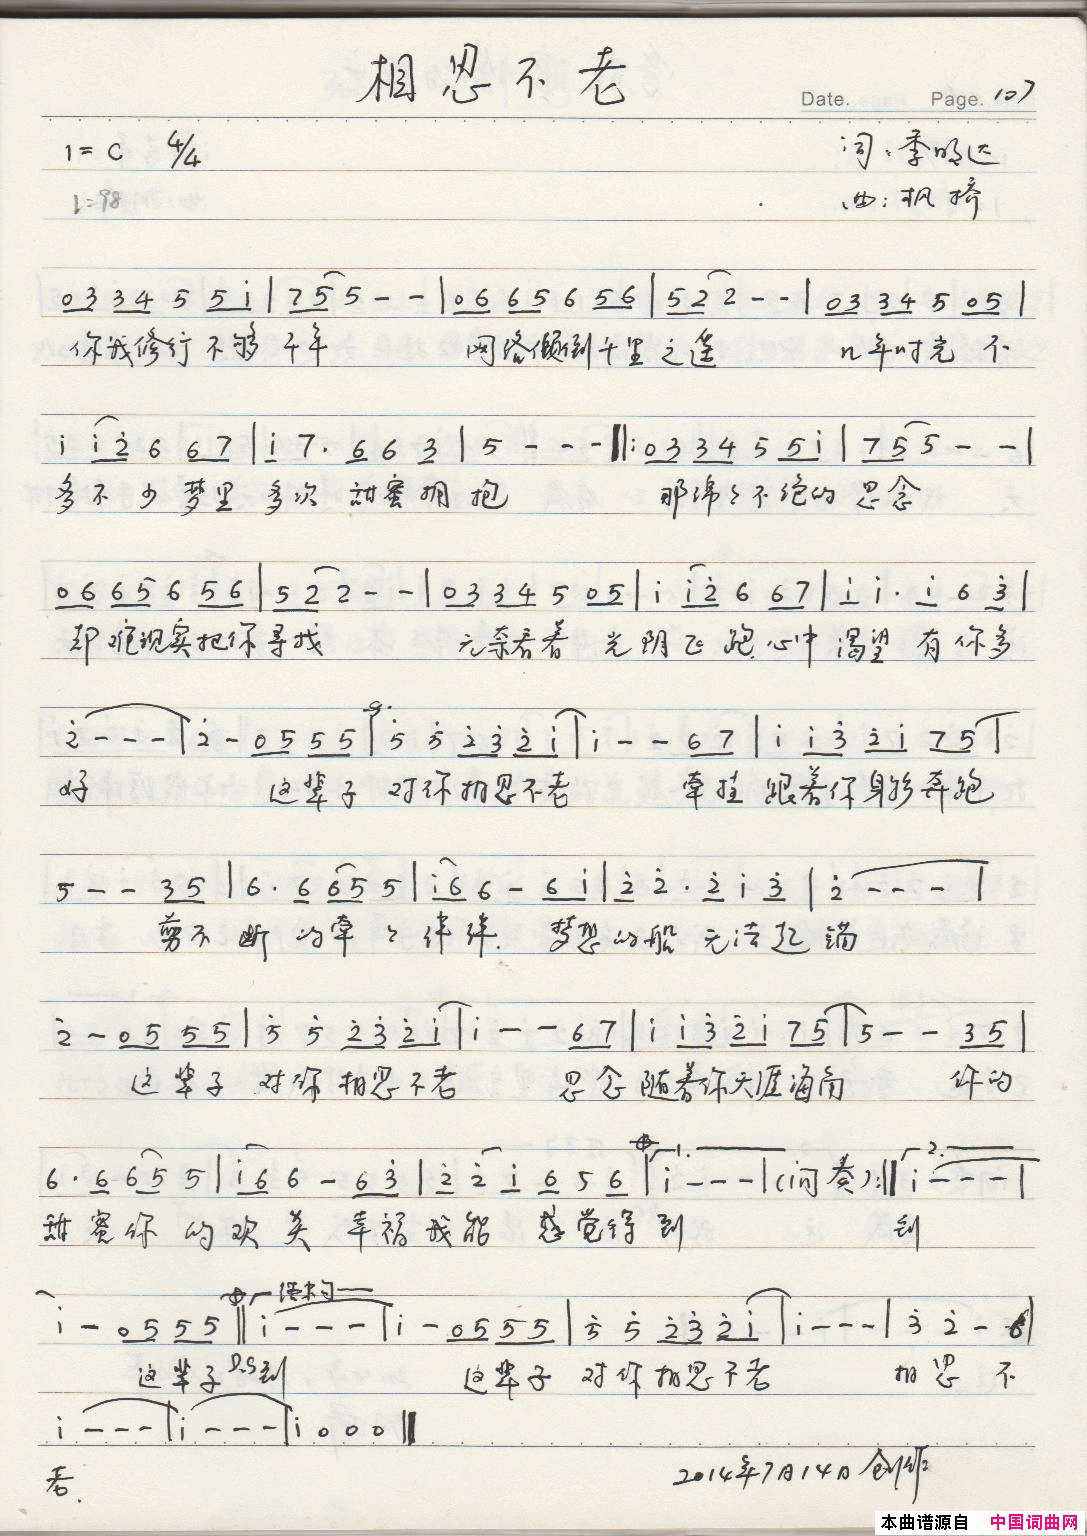 相思不老
Date. Page. 107
1=C 4/4
词:季明达
♩=98
曲:枫桥
0 3 3 4 5 5 i | 7 5 5 - - | 0 6 6 5 6 5 6 | 5 2 2 - - | 0 3 3 4 5 0 5 |
你我修行不够千年 网络倾倒千里之遥 几年时光 不
i i 2 6 6 7 | i 7 · 6 6 3 | 5 - - - ‖: 0 3 3 4 5 5 i | 7 5 5 - - |
多不少梦里多次 甜蜜拥抱 那绵々不绝的思念
0 6 6 5 6 5 6 | 5 2 2 - - | 0 3 3 4 5 0 5 | i i 2 6 6 7 | i i · i 6 3 |
却难现实把你寻找 无奈看着 光阴飞跑 心中渴望有你多
2 - - - | 2 - 0 5 5 5 | 5 5 2 3 2 i | i - - 6 7 | i i 3 2 i 7 5 |
好 这辈子 对你相思不老 牵挂 跟着你身影奔跑
5 - - 3 5 | 6 · 6 6 5 5 | i 6 6 - 6 i | 2 2 · 2 i 3 | 2 - - - |
剪不断 的牵々绊绊. 梦想的船 无法起锚
2 - 0 5 5 5 | 5 5 2 3 2 i | i - - 6 7 | i i 3 2 i 7 5 | 5 - - 3 5 |
这辈子 对你相思不老 思念随着你天涯海角 你的
6 · 6 6 5 5 | i 6 6 - 6 3 | 2 2 i 6 5 6 | 1. i - - - | (间奏) :‖ 2. i - - - |
甜蜜你 的欢笑 幸福我能 感觉得到 到
i - 0 5 5 5 ‖ 结束句 i - - - | i - 0 5 5 5 | 5 5 2 3 2 i | i - - - | 3 2 - 6 |
这辈子 D.S 到 这辈子 对你相思不老 相思 不
i - - - | i - - - | i 0 0 0 ‖
老.
2014年7月14日创作
本曲谱源自 中国词曲网